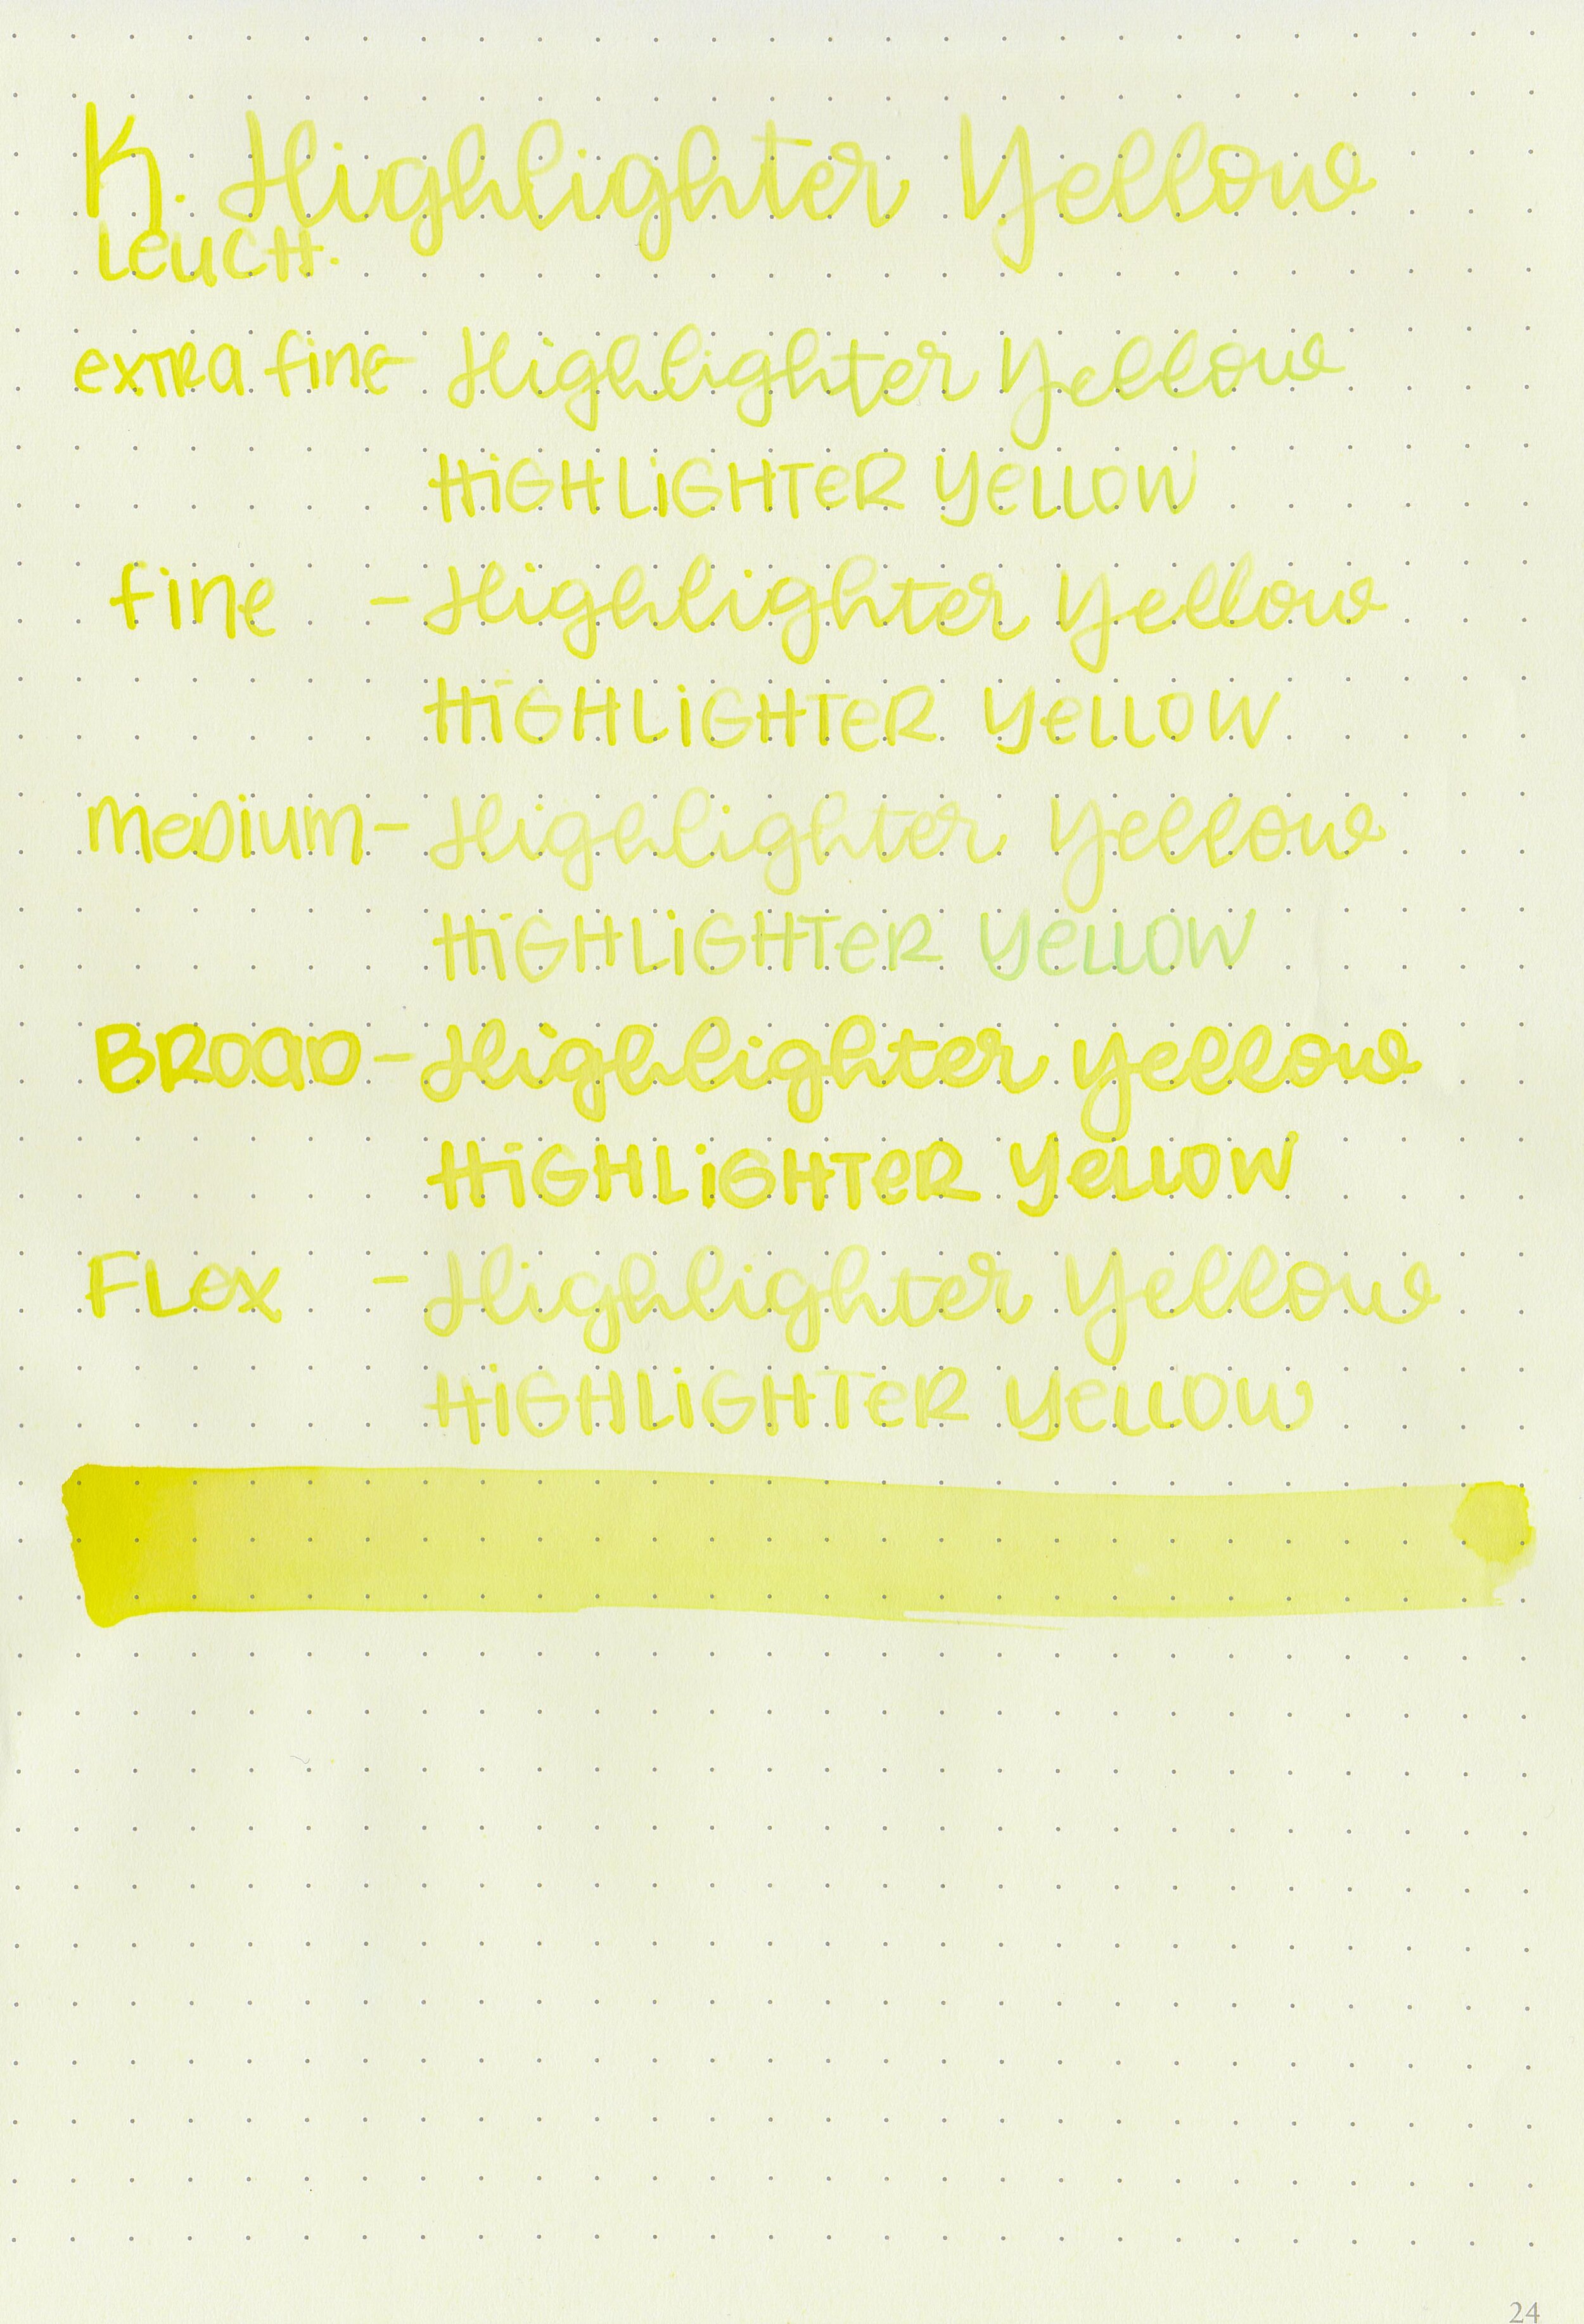 K. Highlighter Yellow
Leuch.
extra fine - Highlighter Yellow
HiGHLiGHTeR YeLLOW
fine - Highlighter Yellow
HiGHLiGHTeR YeLLOW
meDium - Highlighter Yellow
HiGHLiGHTeR YeLLOW
BROAD - Highlighter Yellow
HiGHLiGHTeR YeLLOW
FLex - Highlighter Yellow
HiGHLiGHTeR YeLLOW
24